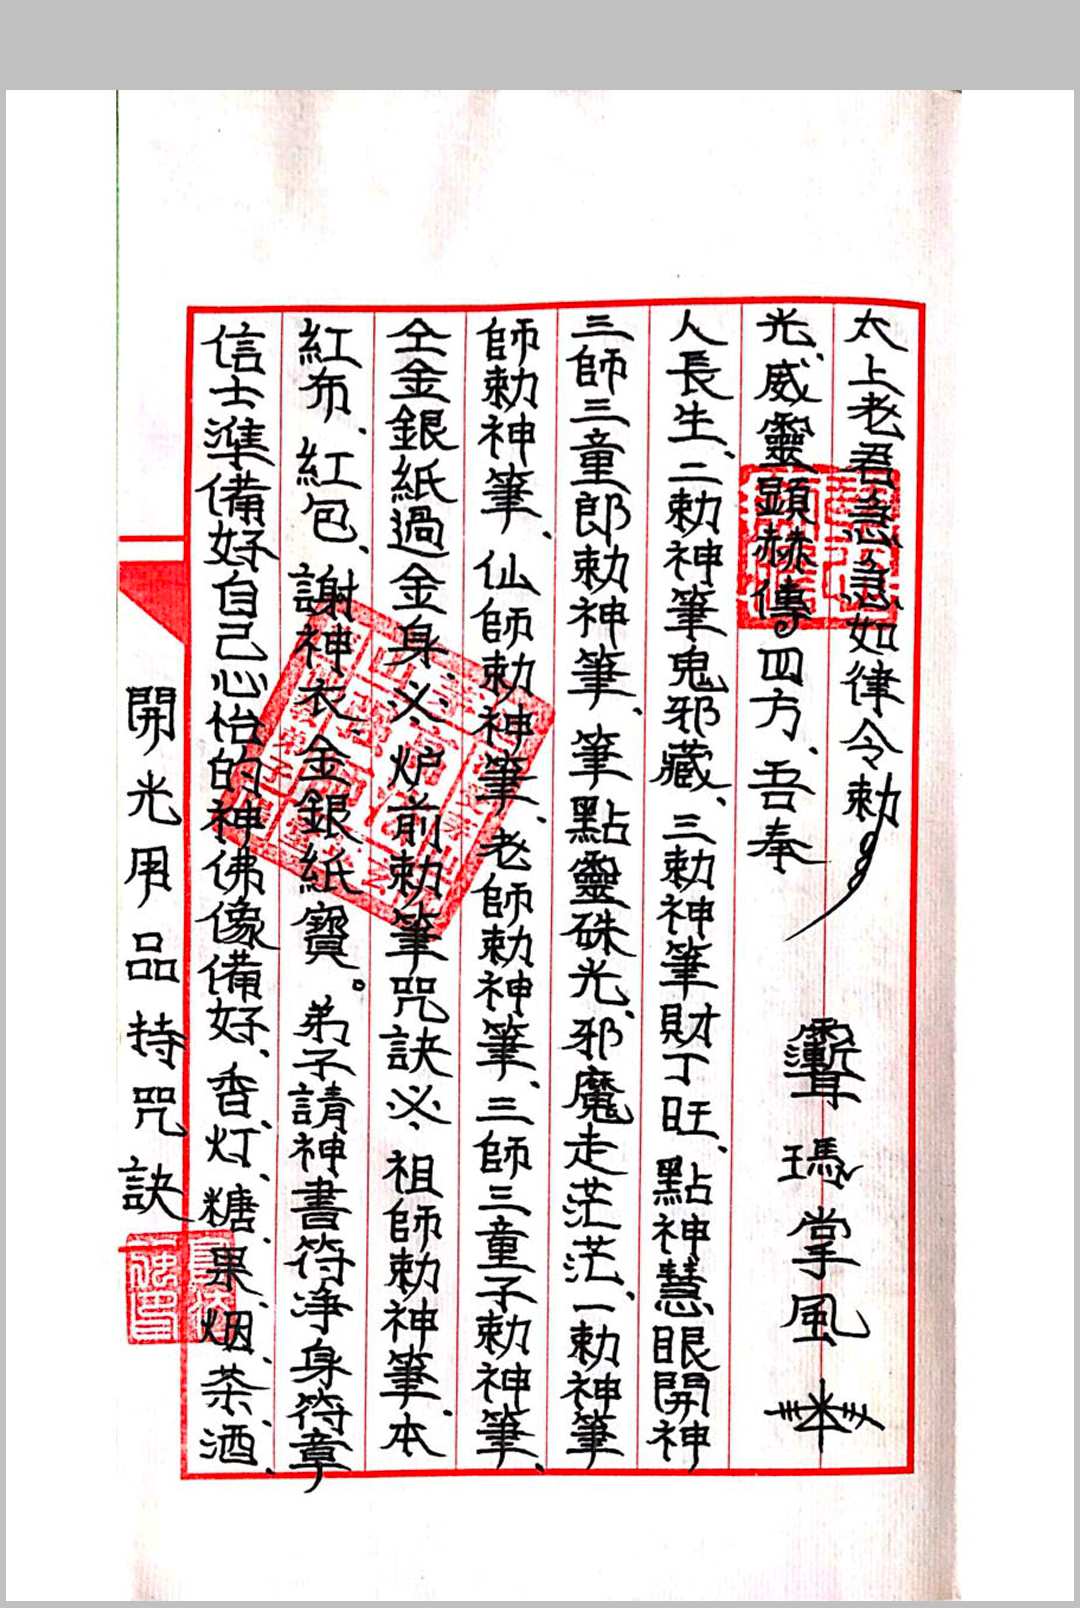 開光用品持咒訣
信士準備好自己心怡的神佛像備好、香灯、糖果、烟、茶酒、
紅布、紅包、謝神衣、金銀紙寶。弟子請神書符净身符章
仝金銀紙過金身、※炉前勅筆咒訣※祖師勅神筆、本
師勅神筆、仙師勅神筆、老師勅神筆、三師三童子勅神筆、
三師三童郎勅神筆、筆點靈硃光、邪魔走茫茫、一勅神筆
人長生、二勅神筆鬼邪藏、三勅神筆財丁旺、點神慧眼開神
光、威靈顯赫傳四方、吾奉
太上老吾急急如律令勅
瑪掌風